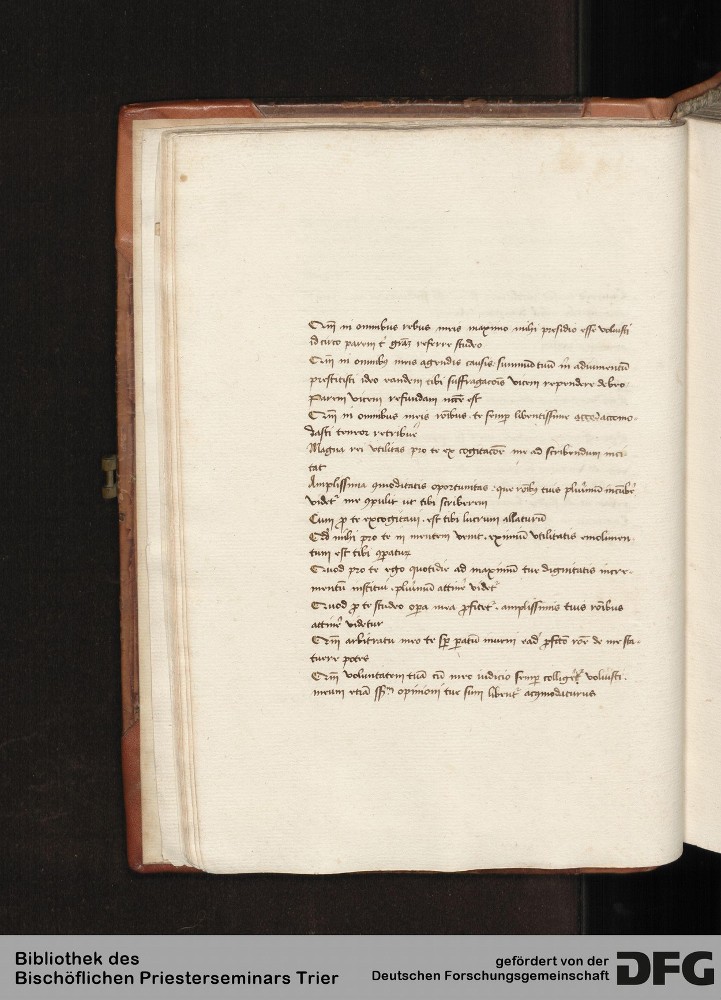 Cum in omnibus rebus meis maximo mihi presidio esse voluisti
idcirco parem t̄ grãm referre studeo
Cum in omnibꝯ meis agendis causis summũ tuũ in adiumentũ
prestitisti ideo eandem tibi suffragacois vicem rependere debeo
Parem vicem refundam necẽ est
Cum in omnibus meis rõibus te semꝑ libentissime accomo-
dasti teneor retribuẽ
Magna rei vtilitas pro te ex cogitacõe me ad scribendum inci-
tat
Amplissima ꝯmoditatis oportunitas que rõibꝯ tuis plurimũ incũbẽ
videtʳ me ꝯpulit ut tibi scriberem
Cum ꝓ te excogitaui est tibi lucrum allaturũ
Qd̃ mihi pro te in mentem venit eximiũ vtilitatis emolimen-
tum est tibi ꝯparatur
Quod pro te ego quotidie ad maximũ tue dignitatis incre-
mentũ institui plurimũ attinẽ videtʳ
Quod ꝓ te studeo oꝑa mea ꝓficetʳ amplissimis tuis rõibus
attinẽ videtur
Cum arbitratu meo te sꝑ paratũ eađ de me sta-
tuere potes
Cum voluntatem tuã cũ meo iudicio semꝑ voluisti
meum etiã opinioni tue sum libentʳ acꝯmodaturus
Bibliothek des
Bischöflichen Priesterseminars Trier
gefördert von der
Deutschen Forschungsgemeinschaft
DFG